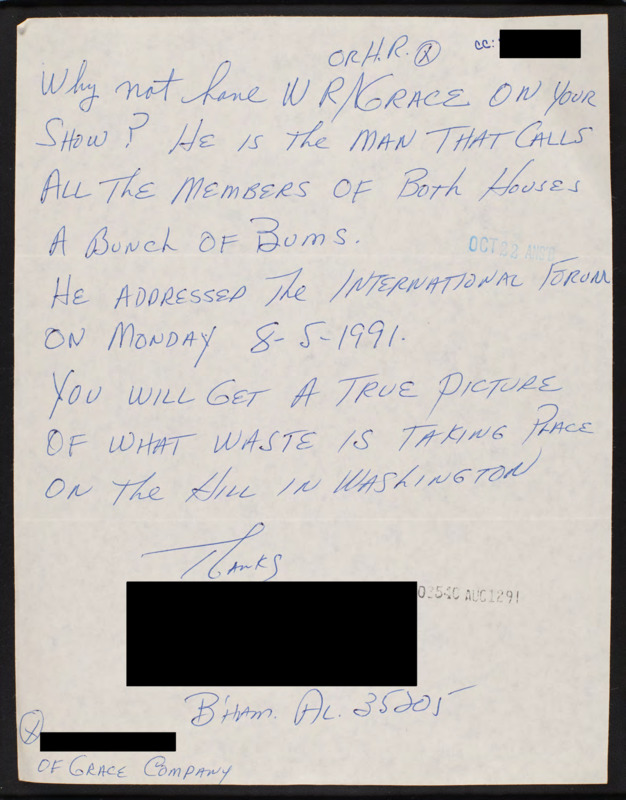 OR H.R. (X) cc:
Why not have W R/GRACE ON YOUR
SHOW? HE IS THE MAN THAT CALLS
ALL THE MEMBERS OF BOTH HOUSES
A BUNCH OF BUMS.
OCT 22
HE ADDRESSED THE INTERNATIONAL FORUM
ON MONDAY 8-5-1991.
YOU WILL GET A TRUE PICTURE
OF WHAT WASTE IS TAKING PLACE
ON THE HILL IN WASHINGTON
THANKS
AUG 12 91
B'HAM. AL. 35205
(X)
OF GRACE COMPANY